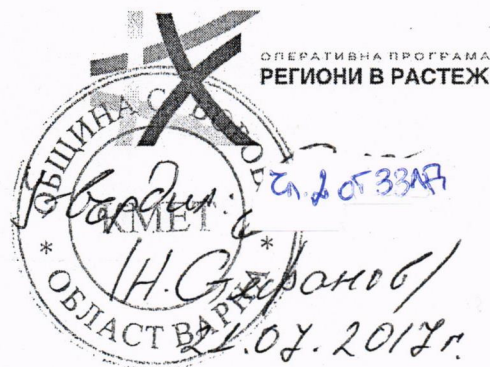 ОПЕРАТИВНА ПРОГРАМА
РЕГИОНИ В РАСТЕЖ
ОБЩИНА
КМЕТ
* ОБЛАСТ ВАРНА *
Утвърдил:
Чл. 2 от ЗЗЛД
/Н. Стефанов/
21.07.2017 г.